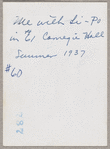 Me with Li-Po
in El Camegie Hall
Summer 1937
$60